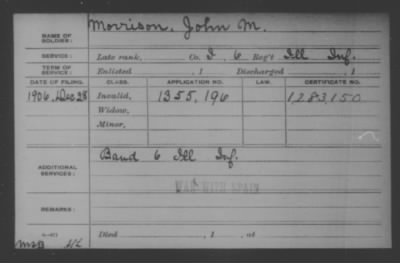 NAME OF SOLDIER: Morrison, John M.
SERVICE: Late rank, Co. I, 6 Reg't Ill Inf.
TERM OF SERVICE: Enlisted , 1 Discharged , 1
DATE OF FILING. CLASS. APPLICATION NO. LAW. CERTIFICATE NO.
1906, Dec 28 Invalid, 1355,196 1,283,150
Widow,
Minor,
ADDITIONAL SERVICES: Band 6 Ill Inf.
WAR WITH SPAIN
REMARKS:
Died , 1 , at